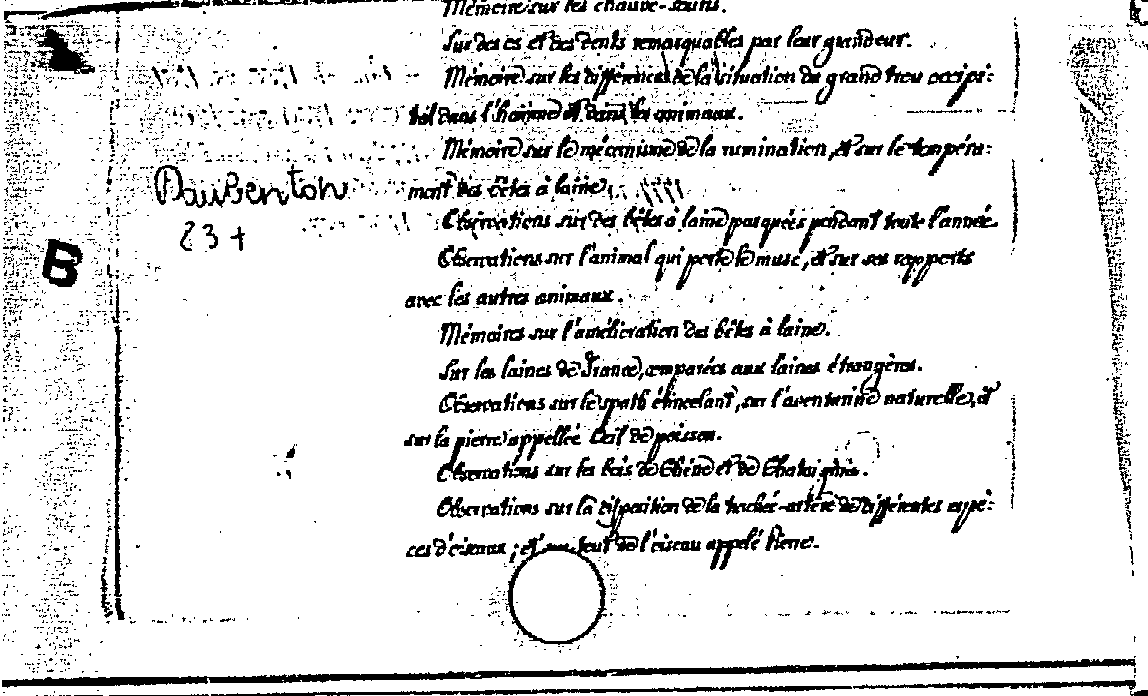 Mémoire sur les chauve-souris.
Sur des os et des dents remarquables par leur grandeur.
Mémoire sur les différences de la situation du grand trou occipi:
tal dans l'homme et dans les animaux.
Mémoire sur le mécanisme de la rumination, et sur le tempéra:
ment des bêtes à laine.
Observations sur des bêtes à laine parquées pendant toute l'année.
Daubenton
23+
B
Observations sur l'animal qui porte le musc, et sur ses rapports
avec les autres animaux.
Mémoires sur l'amélioration des bêtes à laine.
Sur les laines de France, comparées aux laines étrangères.
Observations sur le spath étincelant, sur l'aventurine naturelle, et
sur la pierre appellée Œil de poisson.
Observations sur les bois de Chêne et de Chataigniers.
Observations sur la disposition de la trachée-artère de différentes espé:
ces d'oiseaux ; et sur tout de l'oiseau appelé Pierre.